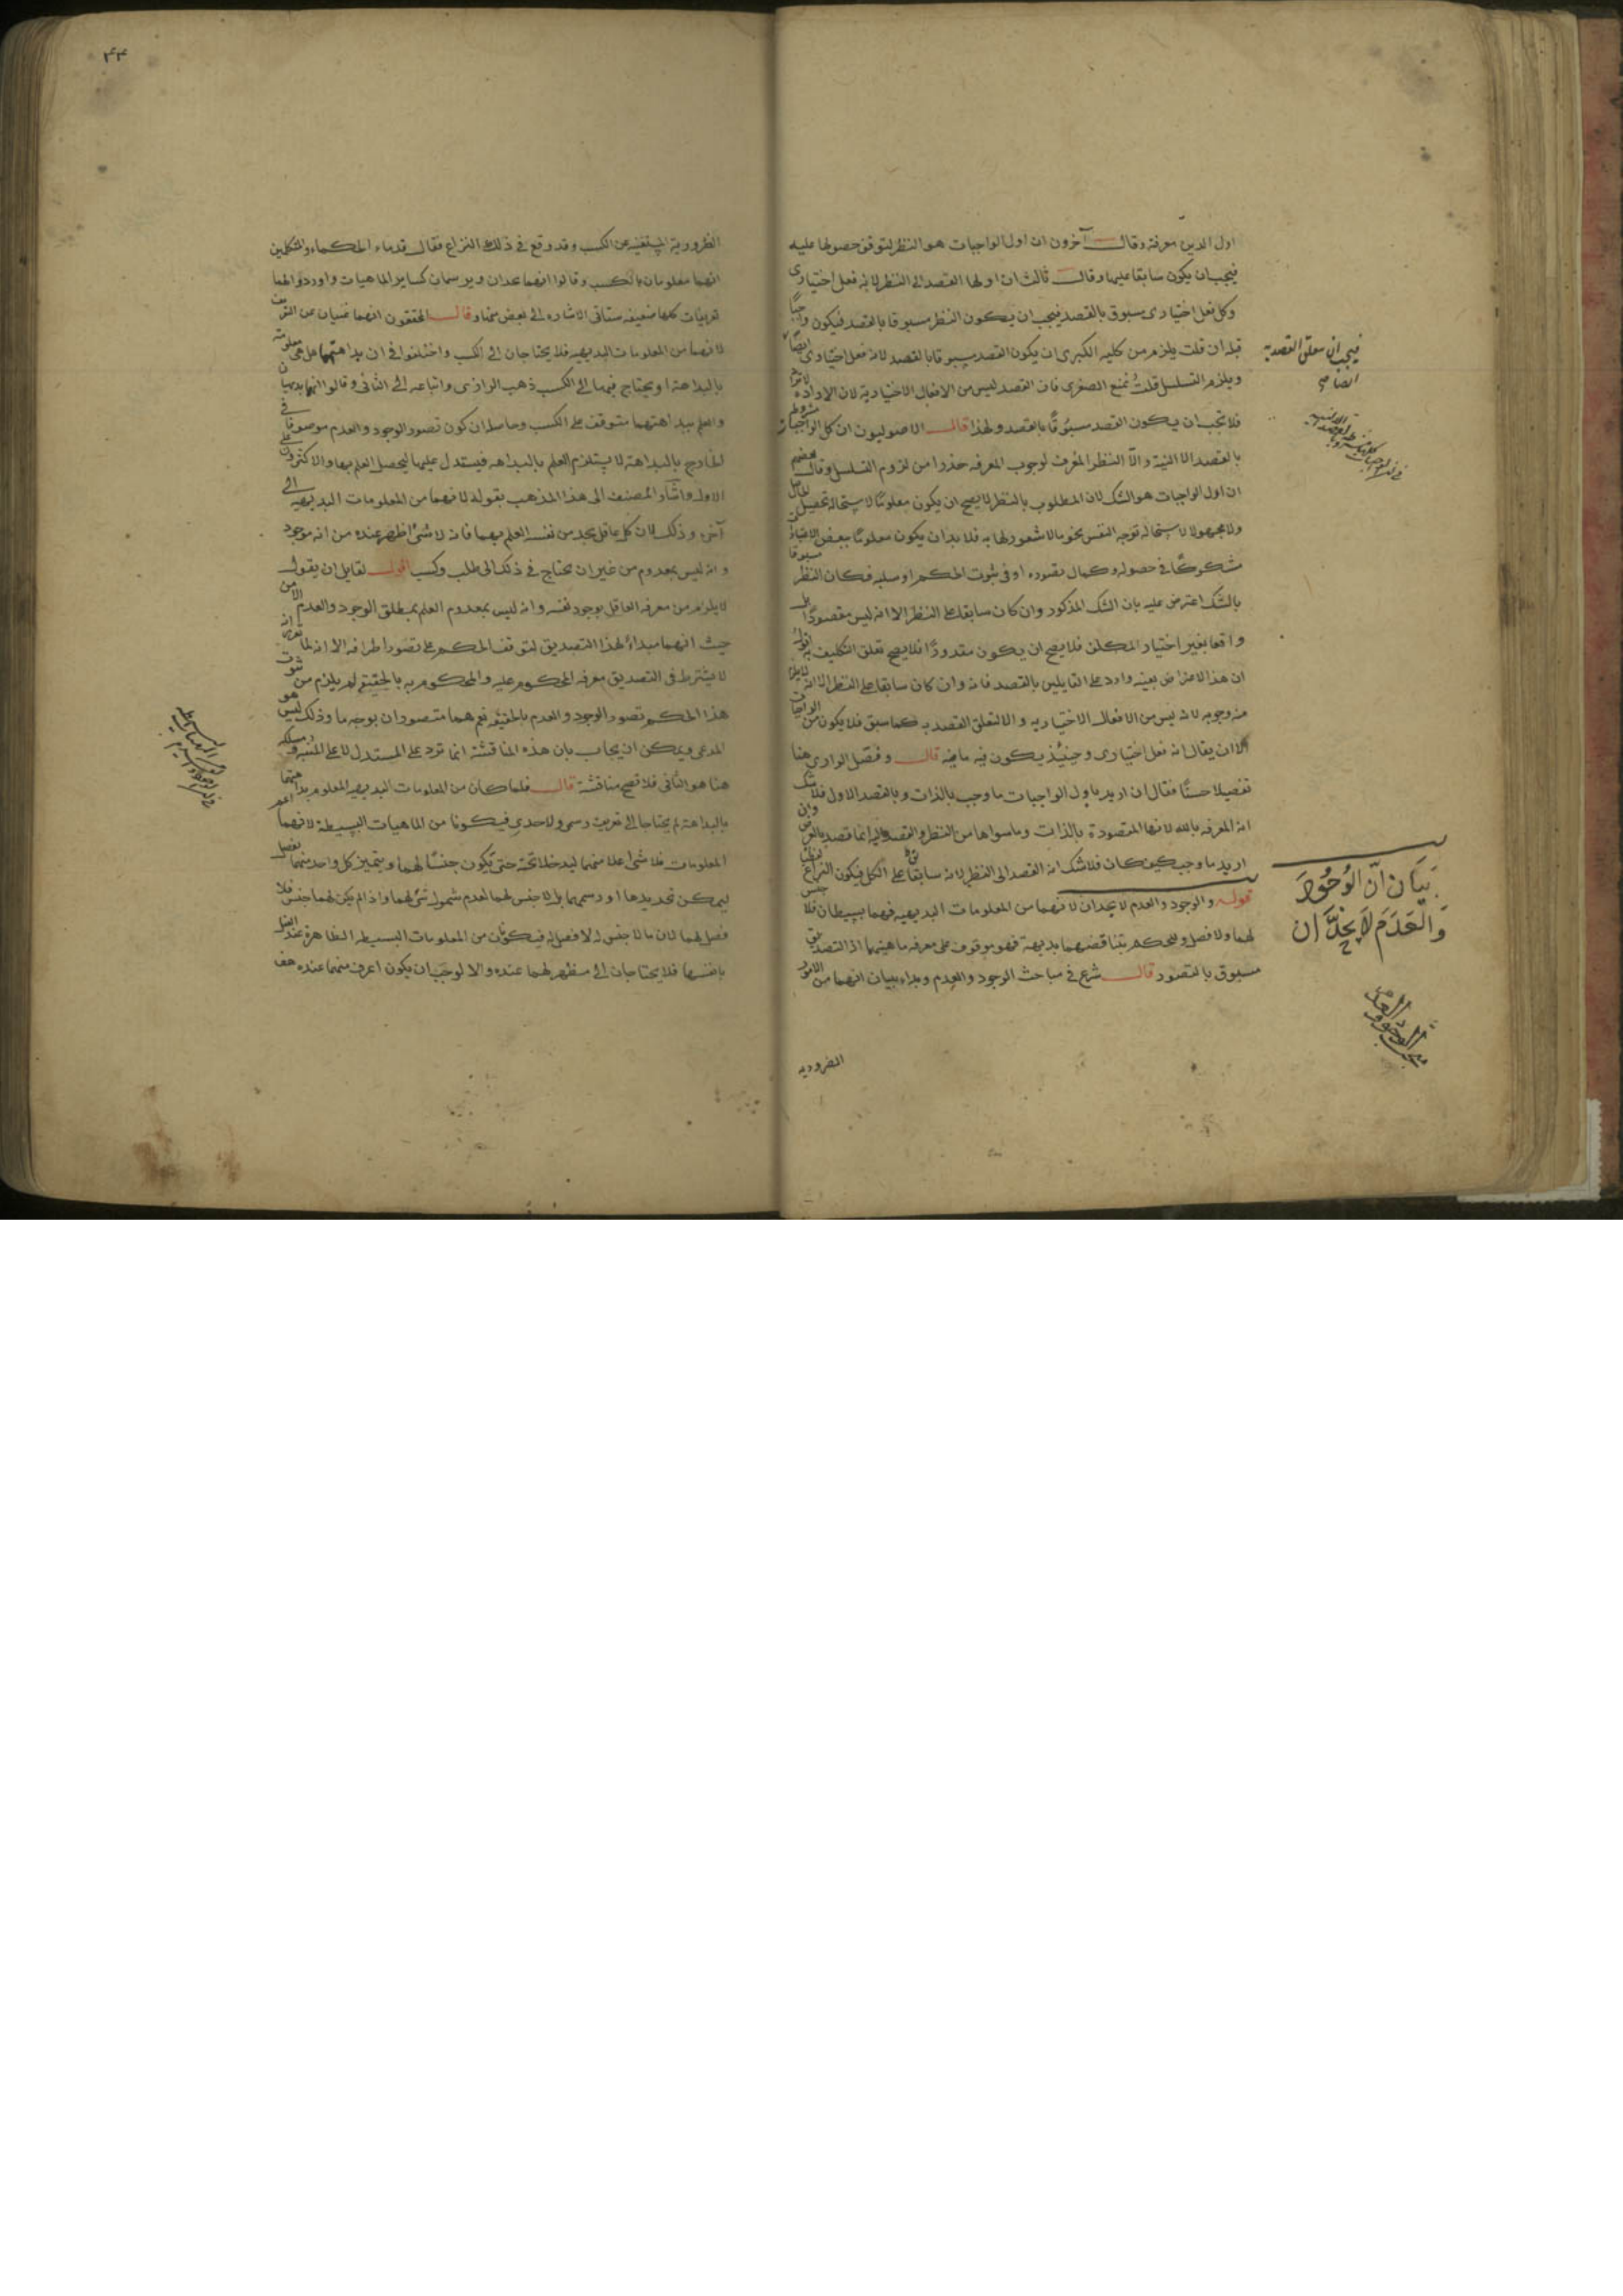 اول الدين معرفة وقال آخرون ان اول الواجبات هو النظر لتوقف حصولها عليه
فيجب ان يكون سابقا عليها وقال ثالث ان اولها القصد الى النظر لانه فعل اختيارى
وكل فعل اختيارى مسبوق بالقصد فيجب ان يكون النظر مسبوقا بالقصد فيكون واجبًا
قبله ان قلت يلزم من كلية الكبرى ان يكون القصد مسبوقا بالقصد لانه فعل اختيارى ايضًا
ويلزم التسلسل قلت نمنع الصغرى فان القصد ليس من الافعال الاختيارية لان الارادة
فلا يجب ان يكون القصد مسبوقًا بالقصد ولهذا قال الاصوليون ان كل الواجبات
بالقصد الا النية والا النظر المعرف لوجوب المعرفه حذرا من لزوم التسلسل وقال بعضهم
ان اول الواجبات هو الشك لان المطلوب بالنظر لا يصح ان يكون معلومًا لاستحالة تحصيل
ولا مجهولا لاستحالة توجه النفس نحو ما لا شعور لها به فلا بد ان يكون معلومًا ببعض
مشكوكًا فى حصوله وكمال تصوره او فى ثبوت الحكم او سلبه فكان النظر مسبوقا
بالشك اعترض عليه بان الشك المذكور وان كان سابقا على النظر الا انه ليس مقصودًا بل
واقعا بغير اختيار المكلف فلا يصح ان يكون مقدورًا فلا يصح تعلق التكليف به اقول
ان هذا الاعتراض بعينه وارد على القايلين بالقصد فانه وان كان سابقا على النظر الا انه
منه وجوبه لانه ليس من الافعال الاختياريه والا لتعلق القصد به كما سبق فلا يكون من الواجبات
الا ان يقال انه فعل اختيارى وحينئذ يكون فيه ما فيه قال وفصل الرازى هنا
تفصيلا حسنًا فقال ان اريد باول الواجبات ما وجب بالذات وبالقصد الاول فلا شك
انه المعرفه بالله لانها المقصودة بالذات وما سواها من النظر والقصد اليه انما قصد بالعرض وان
اريد ما وجب كيف كان فلا شك انه القصد الى النظر لانه سابقا على الكل فيكون النزاع لفظيا
قوله والوجود والعدم لا يحدان لانهما من المعلومات البديهيه فهما بسيطان فلا جنس
لهما ولا فصل وللحكم بتناقضهما بديهة فهو موقوف على معرفه ماهيتهما اذ التصديق
مسبوق بالتصور قال شرع فى مباحث الوجود والعدم وبداء ببيان انهما من الامور
الضروريه
فيجب ان يتعلق القصد به
ايضا
بَيَان اَنّ الوُجُوُدَ
وَالعَدَمَ لاَ يُحَدَّانِ
مبحث الوجود والعدم
٤٣
الضرورية المستغنيه عن الكسب وقد وقع فى ذلك النزاع فقال قدماء الحكماء والمتكلمين
انهما معلومان بالكسب وقالوا انهما يحدان ويرسمان كساير الماهيات واوردوا لهما
تعريفات كلها ضعيفه ستاتى الاشاره الى بعض منها وقال المحققون انهما غنيان عن التعريف
لانهما من المعلومات البديهيه فلا يحتاجان الى الكسب واختلفوا فى ان بداهتهما هل هى معلومة
بالبداهة او يحتاج فيها الى الكسب ذهب الرازى واتباعه الى الثانى وقالوا انهما بديهيان
والعلم ببداهتهما متوقف على الكسب وحاصله ان كون تصور الوجود والعدم موصوفا فى
الخارج بالبداهة لا يستلزم العلم بالبداهه فيستدل عليها ليحصل العلم بها والاكثرون على
الاول واشار المصنف الى هذا المذهب بقوله لانهما من المعلومات البديهيه الى
آخره وذلك لان كل عاقل يجد من نفسه العلم بهما فانه لا شئ اظهر عنده من انه موجود
وانه ليس بمعدوم من غير ان يحتاج فى ذلك الى طلب وكسب اقول لقايل ان يقول
لا يلزم من معرفه العاقل بوجود نفسه وانه ليس بمعدوم العلم بمطلق الوجود والعدم الا من
حيث انهما مبداء لهذا التصديق لتوقف الحكم على تصور اطرافه الا انه لما
لا يشترط فى التصديق معرفه المحكوم عليه والمحكوم به بالحقيقة لم يلزم من ثبوت
هذا الحكم تصور الوجود والعدم بالحقيقه نعم هما متصوران بوجه ما وذلك ليس هو
المدعى ويمكن ان يجاب بان هذه المناقشة انما ترد على المستدل لا على المنبه
هنا هو الثانى فلا تصح مناقشة قال فلما كان من المعلومات البديهيه المعلوم بداهتهما
بالبداهة لم يحتاجا الى تعريف رسمى ولا حدى فيكونا من الماهيات البسيطة لانهما اعم
المعلومات فلا شئ اعلا منهما ليدخلا تحته حتى يكون جنسًا لهما ويتميز كل واحد منهما بفصل
ليمكن تحديدها او رسمهما بل لا جنس لهما لعدم شمول شئ لهما واذا لم يكن لهما جنس فلا
فصل لهما لان ما لا جنس له لا فصل له فيكونان من المعلومات البسيطه الظاهرة عند العقل
بانفسها فلا يحتاجان الى مظهر لهما عنده والا لوجب ان يكون اعرف منهما عنده هف